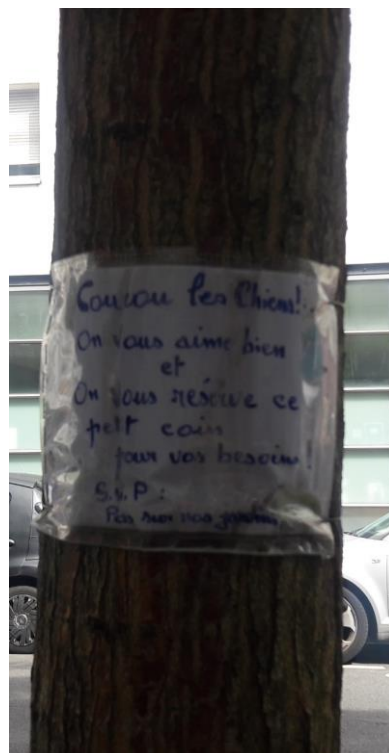 Coucou les Chiens!
On vous aime bien
et
On vous réserve ce
petit coin
pour vos besoins !
S.v.P :
Pas sur nos jardins